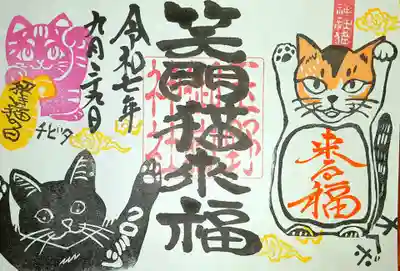 社猫
笑門猫来福
令和七年
九月二九日
チビタ
来る福